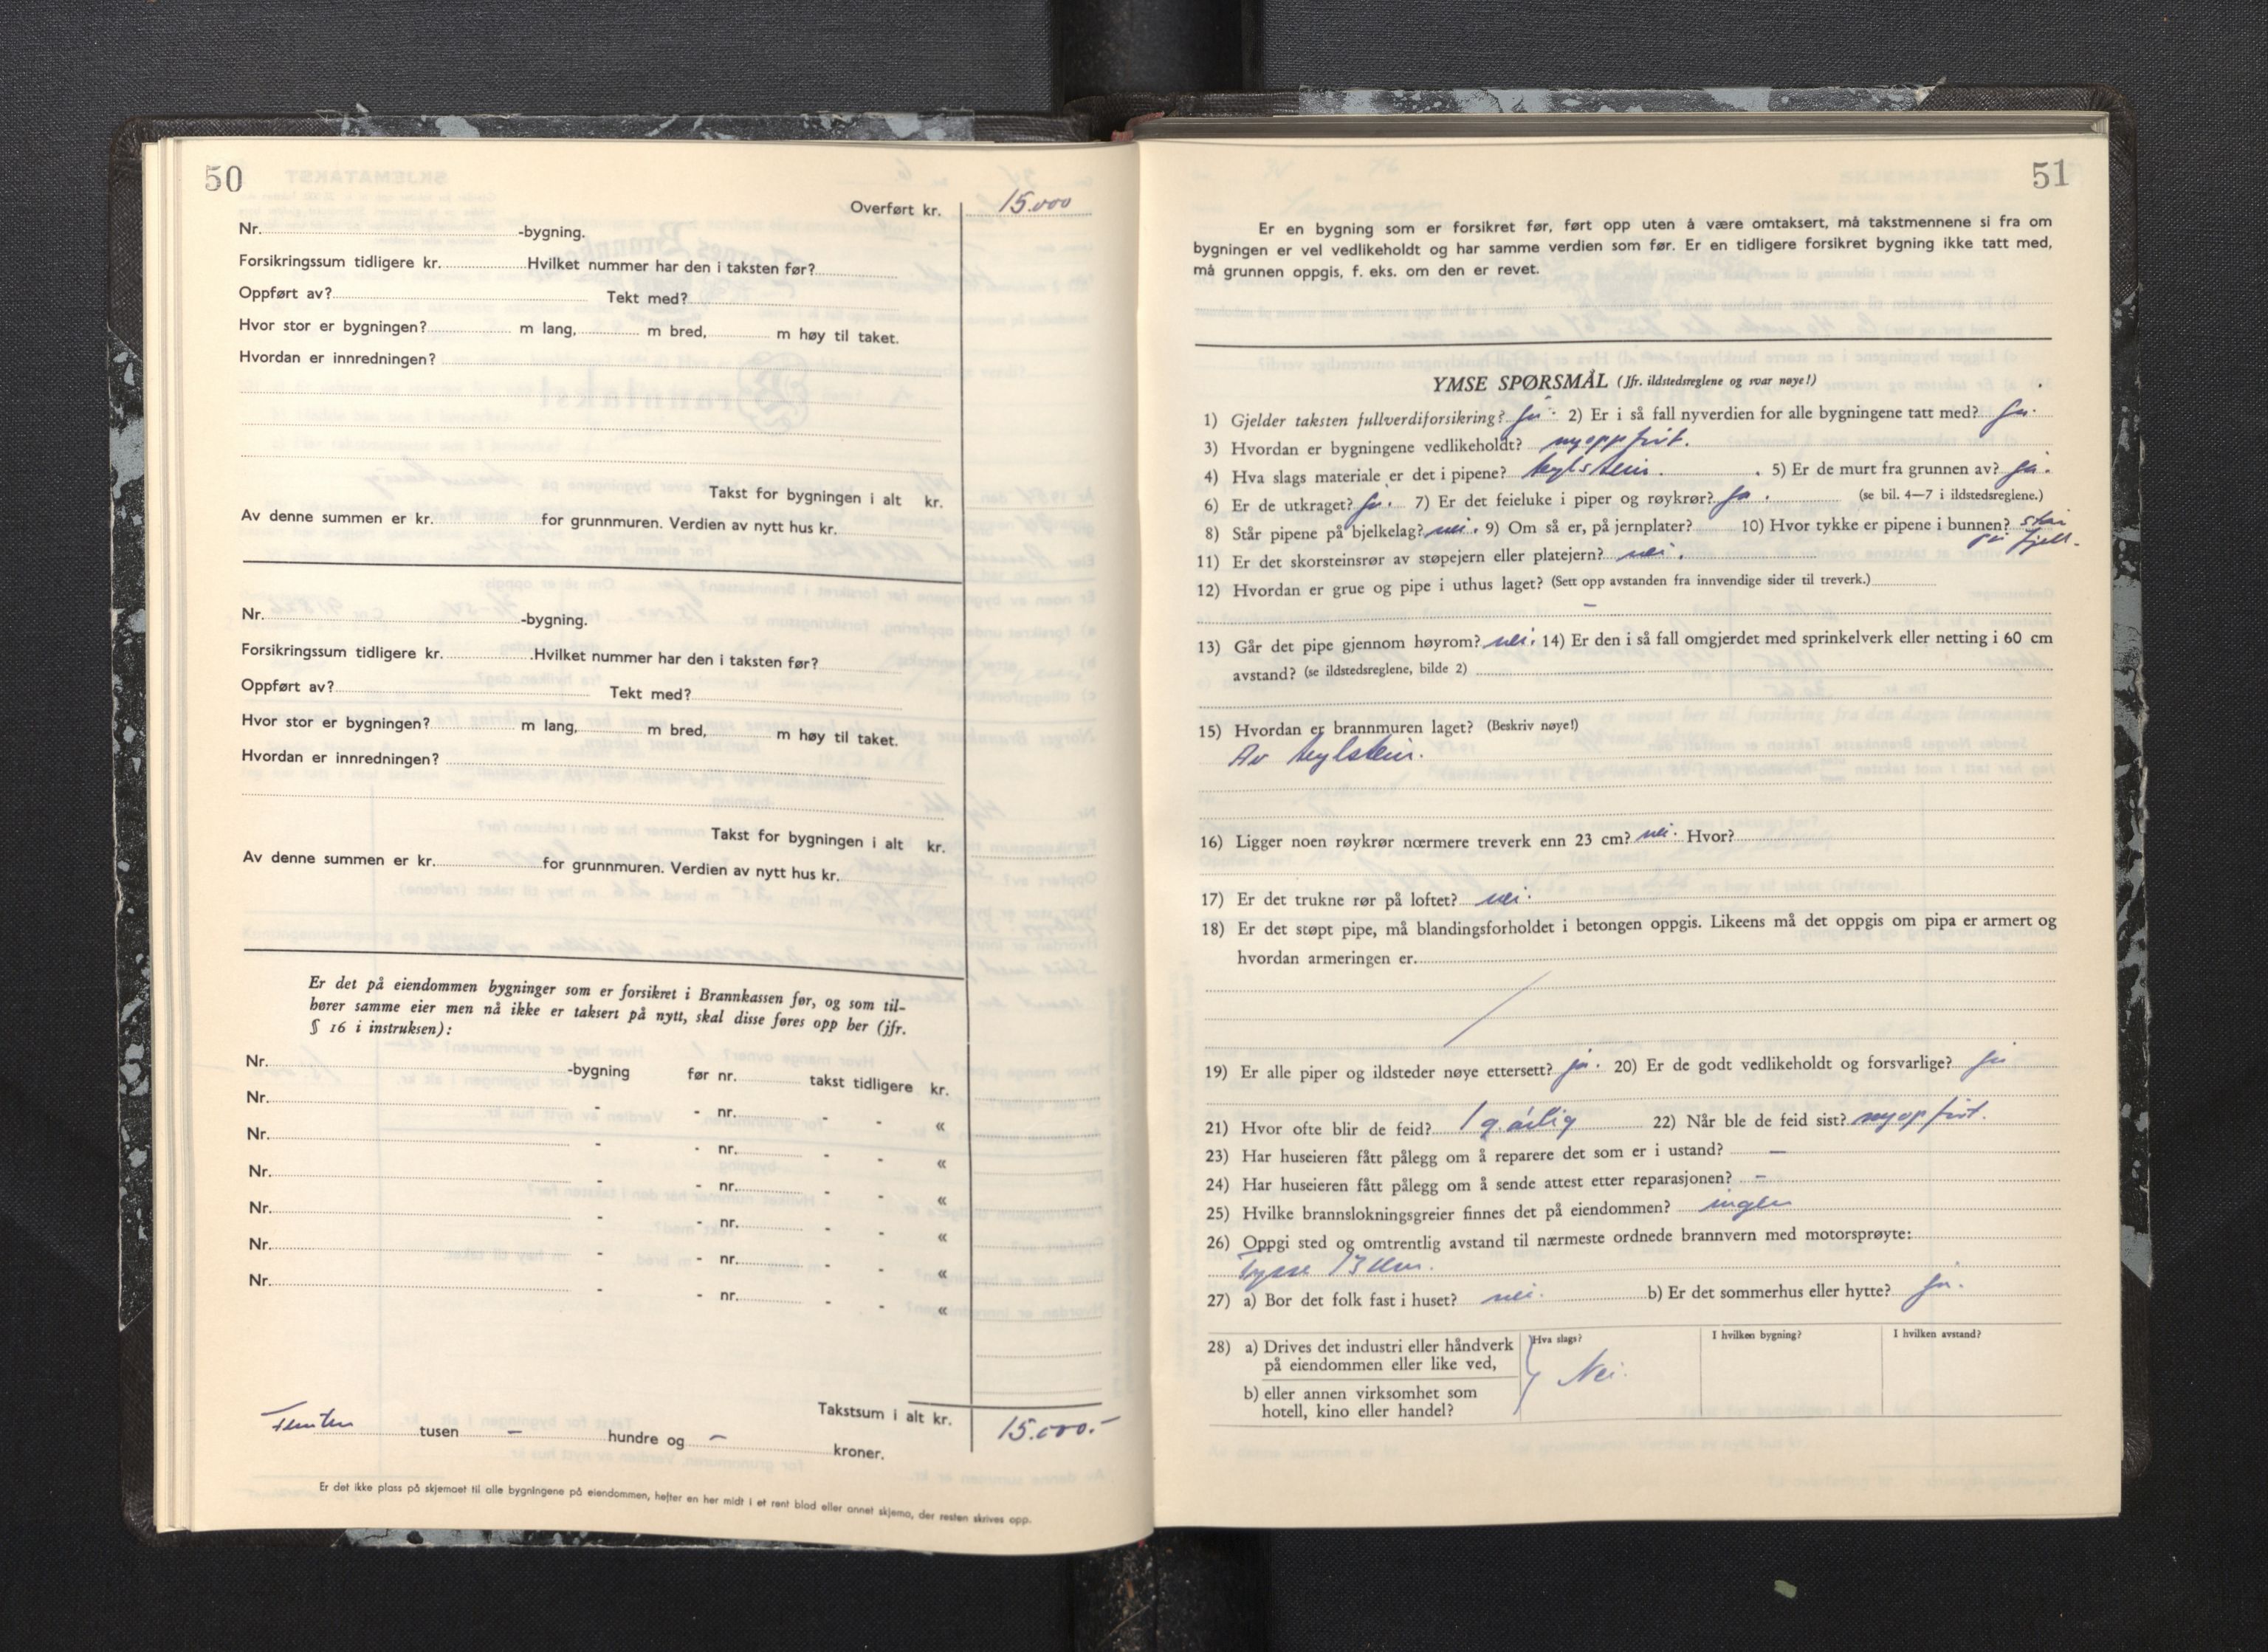 50
Overført kr. 15.000
Nr. -bygning.
Forsikringssum tidligere kr. Hvilket nummer har den i taksten før?
Oppført av? Tekt med?
Hvor stor er bygningen? m lang, m bred, m høy til taket.
Hvordan er innredningen?
Takst for bygningen i alt kr.
Av denne summen er kr. for grunnmuren. Verdien av nytt hus kr.
Nr. -bygning.
Forsikringssum tidligere kr. Hvilket nummer har den i taksten før?
Oppført av? Tekt med?
Hvor stor er bygningen? m lang, m bred, m høy til taket.
Hvordan er innredningen?
Takst for bygningen i alt kr.
Av denne summen er kr. for grunnmuren. Verdien av nytt hus kr.
Er det på eiendommen bygninger som er forsikret i Brannkassen før, og som til-
hører samme eier men nå ikke er taksert på nytt, skal disse føres opp her (jfr.
§ 16 i instruksen):
Nr. -bygning før nr. takst tidligere kr.
Nr. - - nr. - - «
Nr. - - nr. - - «
Nr. - - nr. - - «
Nr. - - nr. - - «
Nr. - - nr. - - «
Nr. - - nr. - - «
Takstsum i alt kr. 15.000.-
Femten tusen - hundre og - kroner.
Er det ikke plass på skjemaet til alle bygningene på eiendommen, hefter en her midt i et rent blad eller annet skjema, der resten skrives opp.
51
Er en bygning som er forsikret før, ført opp uten å være omtaksert, må takstmennene si fra om
bygningen er vel vedlikeholdt og har samme verdien som før. Er en tidligere forsikret bygning ikke tatt med,
må grunnen oppgis, f. eks. om den er revet.
YMSE SPØRSMÅL (Jfr. ildstedsreglene og svar nøye!)
1) Gjelder taksten fullverdiforsikring? ja. 2) Er i så fall nyverdien for alle bygningene tatt med? Ja.
3) Hvordan er bygningene vedlikeholdt? nyoppført.
4) Hva slags materiale er det i pipene? teglstein. 5) Er de murt fra grunnen av? ja.
6) Er de utkraget? ja. 7) Er det feieluke i piper og røykrør? ja. (se bil. 4—7 i ildstedsreglene.)
8) Står pipene på bjelkelag? nei. 9) Om så er, på jernplater? 10) Hvor tykke er pipene i bunnen? står
på fjell.
11) Er det skorsteinsrør av støpejern eller platejern? nei.
12) Hvordan er grue og pipe i uthus laget? (Sett opp avstanden fra innvendige sider til treverk.)
-
13) Går det pipe gjennom høyrom? nei. 14) Er den i så fall omgjerdet med sprinkelverk eller netting i 60 cm
avstand? (se ildstedsreglene, bilde 2)
15) Hvordan er brannmuren laget? (Beskriv nøye!)
Av teglstein.
16) Ligger noen røykrør nærmere treverk enn 23 cm? nei. Hvor?
17) Er det trukne rør på loftet? nei.
18) Er det støpt pipe, må blandingsforholdet i betongen oppgis. Likeens må det oppgis om pipa er armert og
hvordan armeringen er.
19) Er alle piper og ildsteder nøye ettersett? ja. 20) Er de godt vedlikeholdt og forsvarlige? ja
21) Hvor ofte blir de feid? 1 g. årlig 22) Når ble de feid sist? nyoppført.
23) Har huseieren fått pålegg om å reparere det som er i ustand? -
24) Har huseieren fått pålegg om å sende attest etter reparasjonen? -
25) Hvilke brannslokningsgreier finnes det på eiendommen? ingen
26) Oppgi sted og omtrentlig avstand til nærmeste ordnede brannvern med motorsprøyte:
Tysse 13 km.
27) a) Bor det folk fast i huset? nei. b) Er det sommerhus eller hytte? ja.
28) a) Drives det industri eller håndverk Hva slags? I hvilken bygning? I hvilken avstand?
på eiendommen eller like ved,
Nei.
b) eller annen virksomhet som
hotell, kino eller handel?